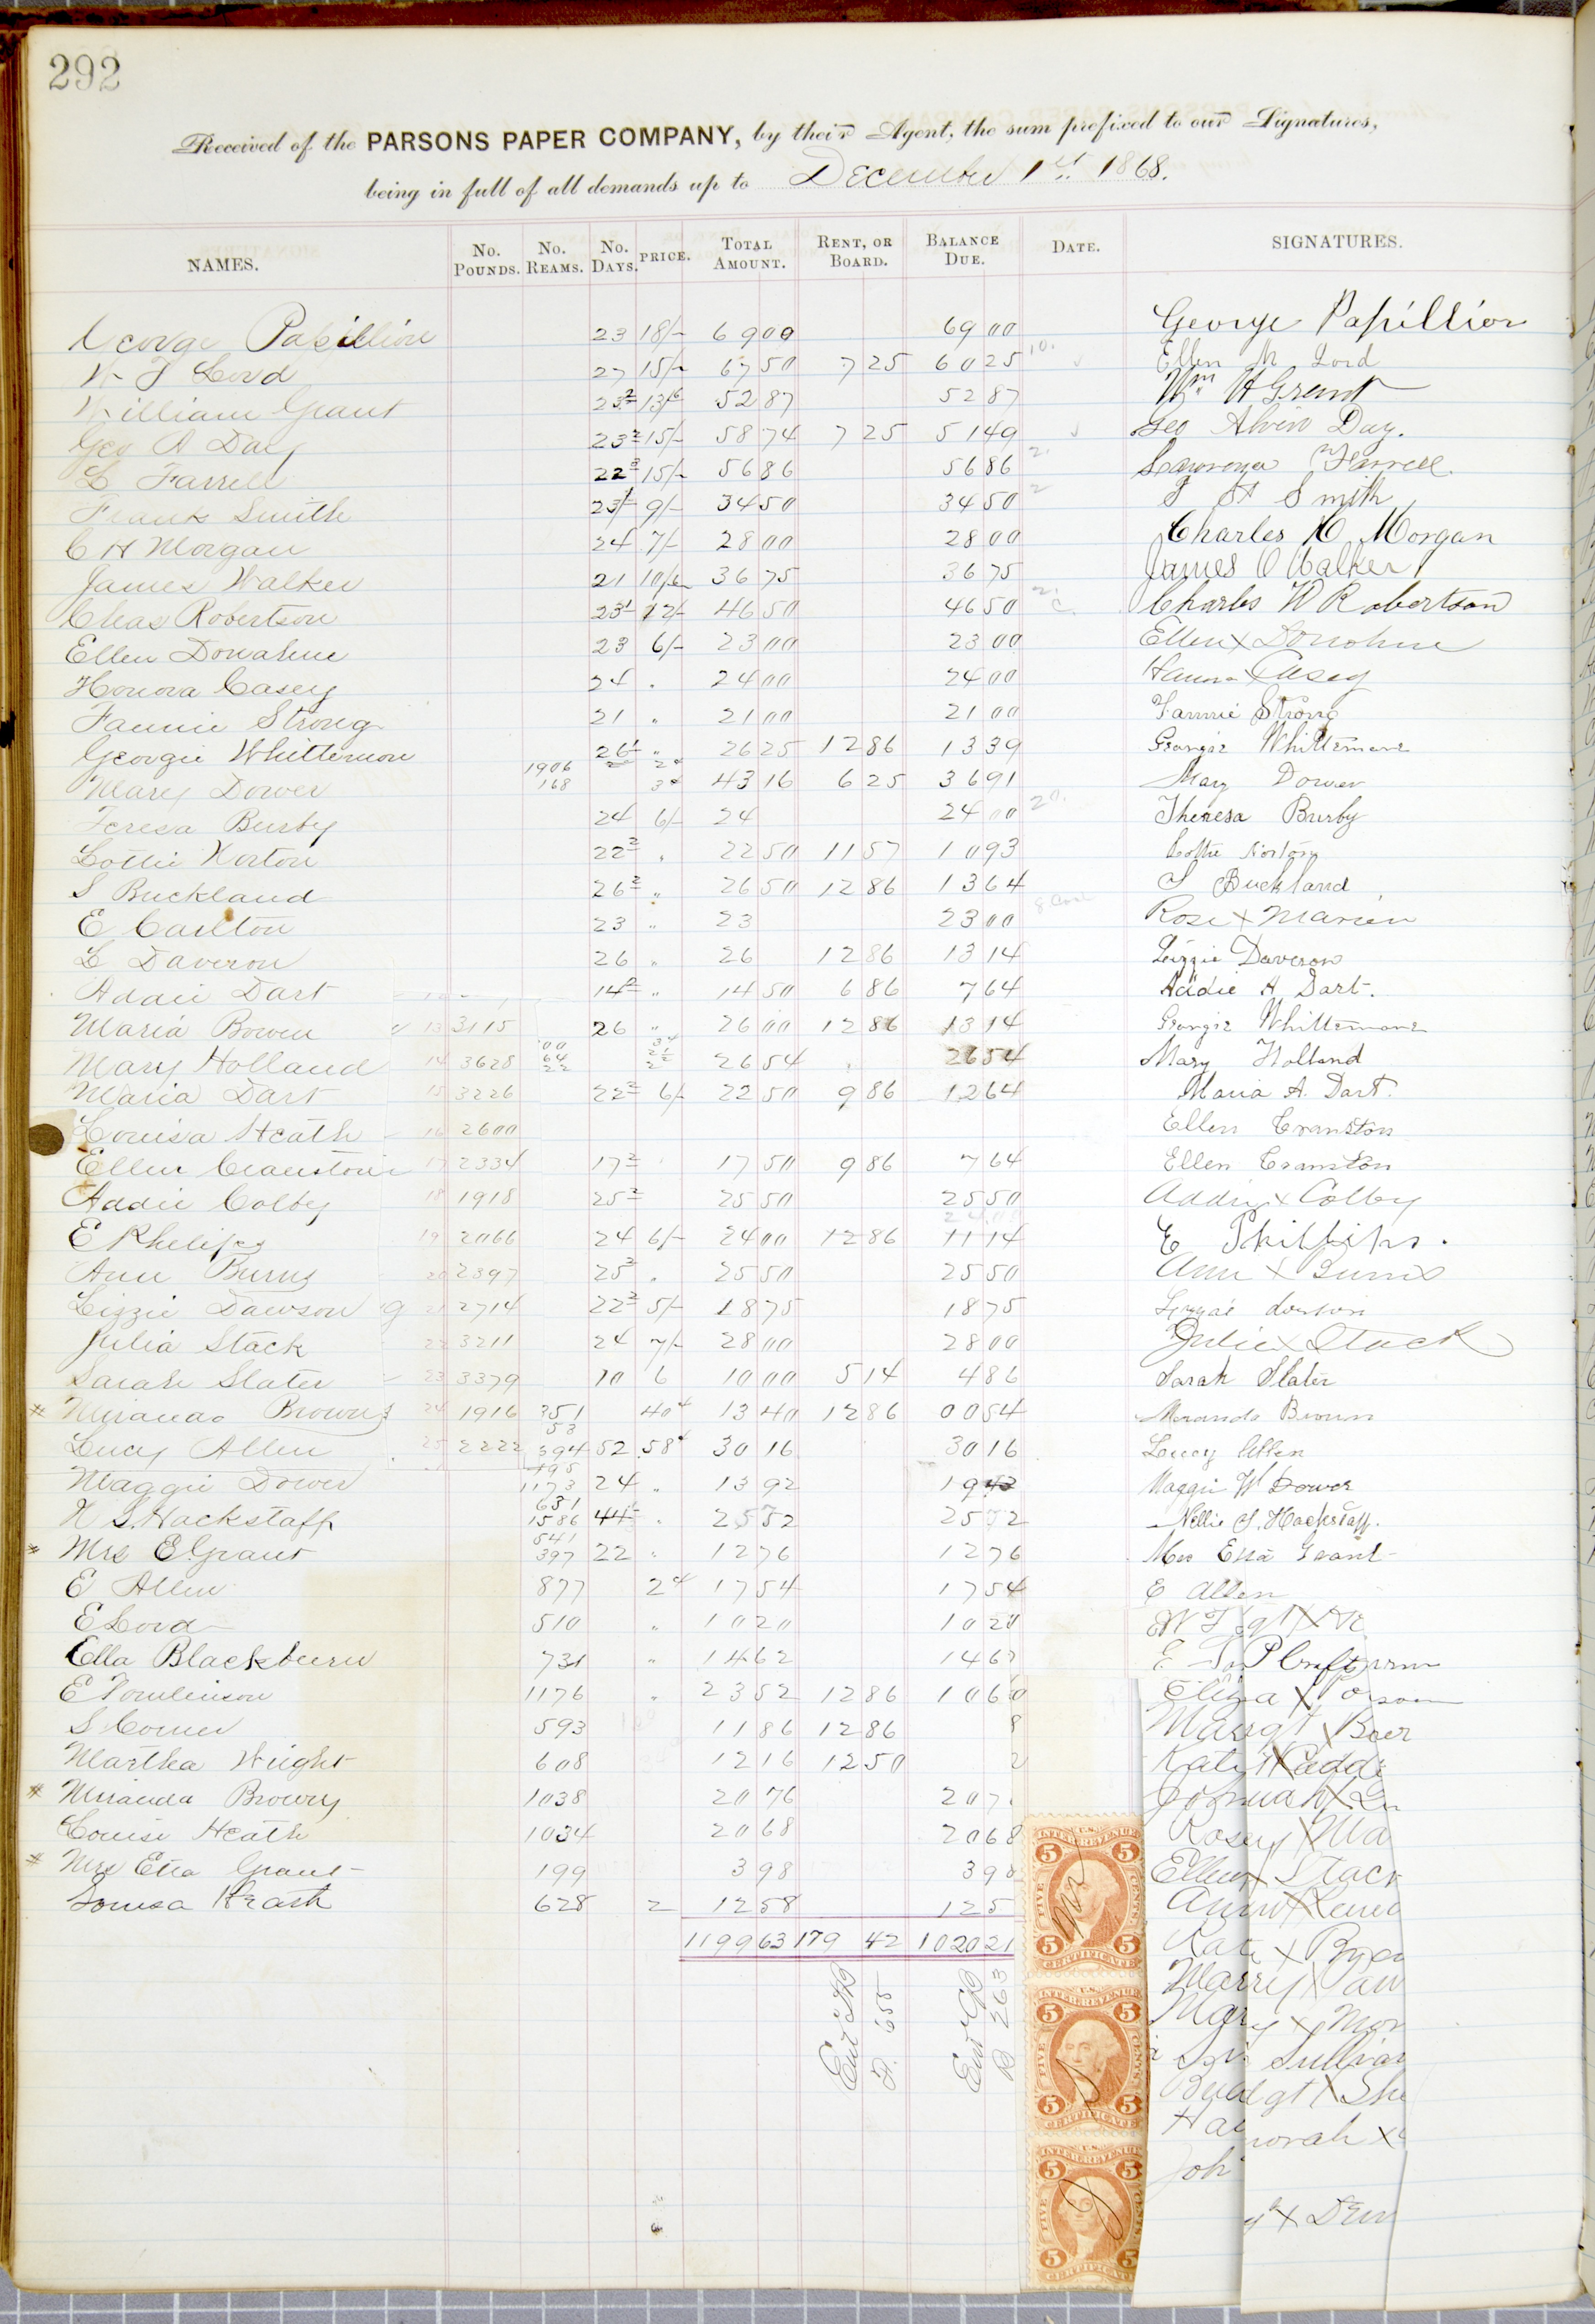 292
Received of the PARSONS PAPER COMPANY, by their Agent, the sum prefixed to our Signatures,
being in full of all demands up to December 1st 1868.
NAMES. No. Pounds. No. Reams. No. Days. PRICE. Total Amount. Rent, or Board. Balance Due. Date. SIGNATURES.
George Papillion 23 18/- 69 00 69 00 George Papillion
W T Lord 27 15/- 67 50 7 25 60 25 10. Ellen M Lord
William Grant 23 2 13/6 52 87 52 87 Wm H Grant
Geo A Day 23 2 15/- 58 74 7 25 51 49 Geo Alvin Day.
L Farrell 22 3 15/- 56 86 56 86 2. Farrell
Frank Smith 23 9/- 34 50 34 50 2 Smith
C H Morgan 24 7/- 28 00 28 00 Charles H Morgan
James Walker 21 10/6 36 75 36 75 James O Walker
Chas Robertson 23 1 12/- 46 50 46 50 Charles W Robertson
Ellen Donahue 23 6/- 23 00 23 00 Ellen X Donohue
Honora Casey 24 " 24 00 24 00 X Casey
Fannie Strong 21 " 21 00 21 00 Fannie Strong
Georgie Whittemore 26 1 " 26 25 12 86 13 39 Georgie Whittemore
Mary Dower 1906 168 43 16 6 25 36 91 Mary Dower
Teresa Busby 24 6/- 24 24 00 20. Theresa Busby
Lottie Norton 22 2 " 22 50 11 57 10 93 Lottie Norton
S Buckland 26 2 " 26 50 12 86 13 64 S Buckland
E Carlton 23 " 23 23 00 Rose X Marien
L Daveron 26 " 26 12 86 13 14 Lizzie Daveron
Addie Dart 14 2 " 14 50 6 86 7 64 Addie A Dart.
Maria Bowen 13 3115 26 " 26 00 12 86 13 14 Georgie Whittemore
Mary Holland 14 3628 26 54 26 54 Mary Holland
Maria Dart 15 3226 22 2 6/- 22 50 9 86 12 64 Maria A. Dart.
Louisa Heath 16 2600 Ellen Cranston
Ellen Cranston 17 2334 17 2 17 50 9 86 7 64 Ellen Cranston
Addie Colby 18 1918 25 2 25 50 25 50 Addie X Colby
E Phelips 19 2066 24 6/- 24 00 12 86 11 14 E Phillips.
Ann Burns 20 2397 25 2 " 25 50 25 50 Ann X Burns
Lizzie Dawson 21 2714 22 2 5/- 18 75 18 75
Julia Stack 22 3211 24 7/- 28 00 28 00 Julie X Stack
Sarah Slater 23 3379 10 6 10 00 5 14 4 86 Sarah Slater
* Miranda Brown 24 1916 351 53 40 13 40 12 86 00 54 Miranda Brown
Lucy Allen 25 2222 394 52 58 30 16 30 16 Lucy Allen
Maggie Dower 1173 24 " 13 92 Maggie W Dower
N S. Hackstaff 631 1586 44 " 25 72 Nellie S. Hackstaff.
* Mrs E. Grant 541 397 22 " 12 76 12 76 Mrs Etta Grant
E Allen 877 2 17 54 17 54 E Allen
E Lord 510 " 10 20 10 20
Ella Blackburn 731 " 14 62 14 62
E Tomlinson 1176 " 23 52 12 86 10 6 Eliza X
S Comer 593 11 86 12 86 Margt X
Martha Wright 608 12 16 12 50 Kate X
* Miranda Brown 1038 20 76 20 7 X
Louise Heath 1034 20 68 20 68 Rosey X Ma
* Mrs Etta Grant 199 3 98 3 98 Ellen X Stack
Louisa Heath 628 2 12 58 12 5 X
1199 63 179 42 1020 21 Kate X
X
Mary X
Sullivan
X She
norah X
Joh
X
655
263
U.S. INTER. REVENUE
FIVE CENTS
5 5
CERTIFICATE
U.S. INTER. REVENUE
FIVE CENTS
5 5
CERTIFICATE
U.S. INTER. REVENUE
FIVE CENTS
5 5
CERTIFICATE